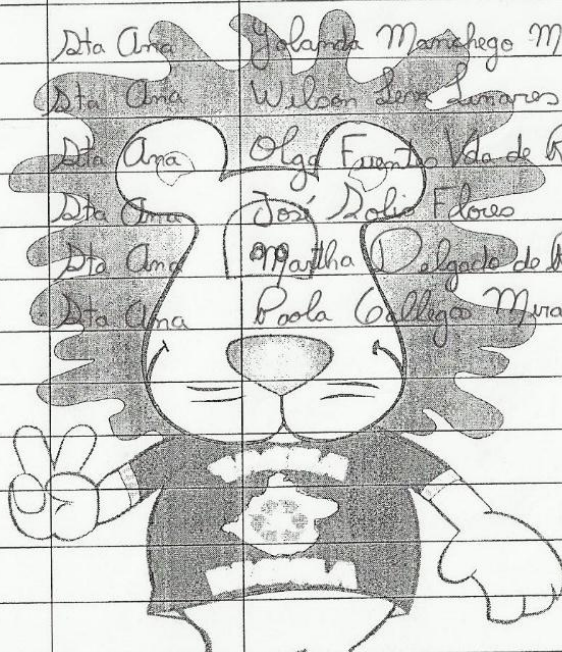 Sta Ana Yolanda Manchego M
Sta Ana Wilson Linares
Sta Ana Olga Fuentes Vda de
Sta Ana José Solis Flores
Sta Ana Martha Delgado de
Sta Ana Paola Gallegos Mira